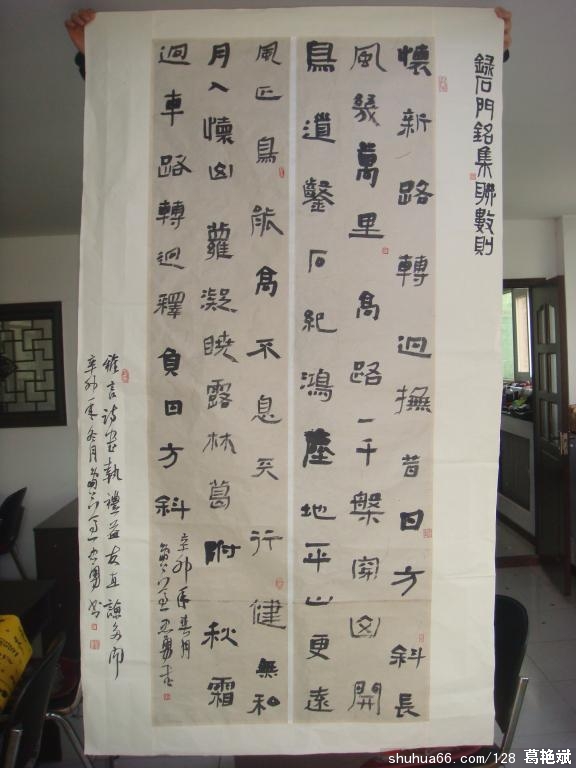 錄石門銘集聯數則
懷新路轉迴撫昔日方斜長
風幾萬里高路一千槃穿山開
鳥道鑿石紀鴻陸地平山更遠
風正鳥能高不息天行健無私
月入懷山蘿凝曉露林葛附秋霜
迴車路轉迴釋負日方斜
辛卯年春月
雅言詩書執禮益友直諒多聞
辛卯年冬月
shuhua66.com/128 葛艳斌